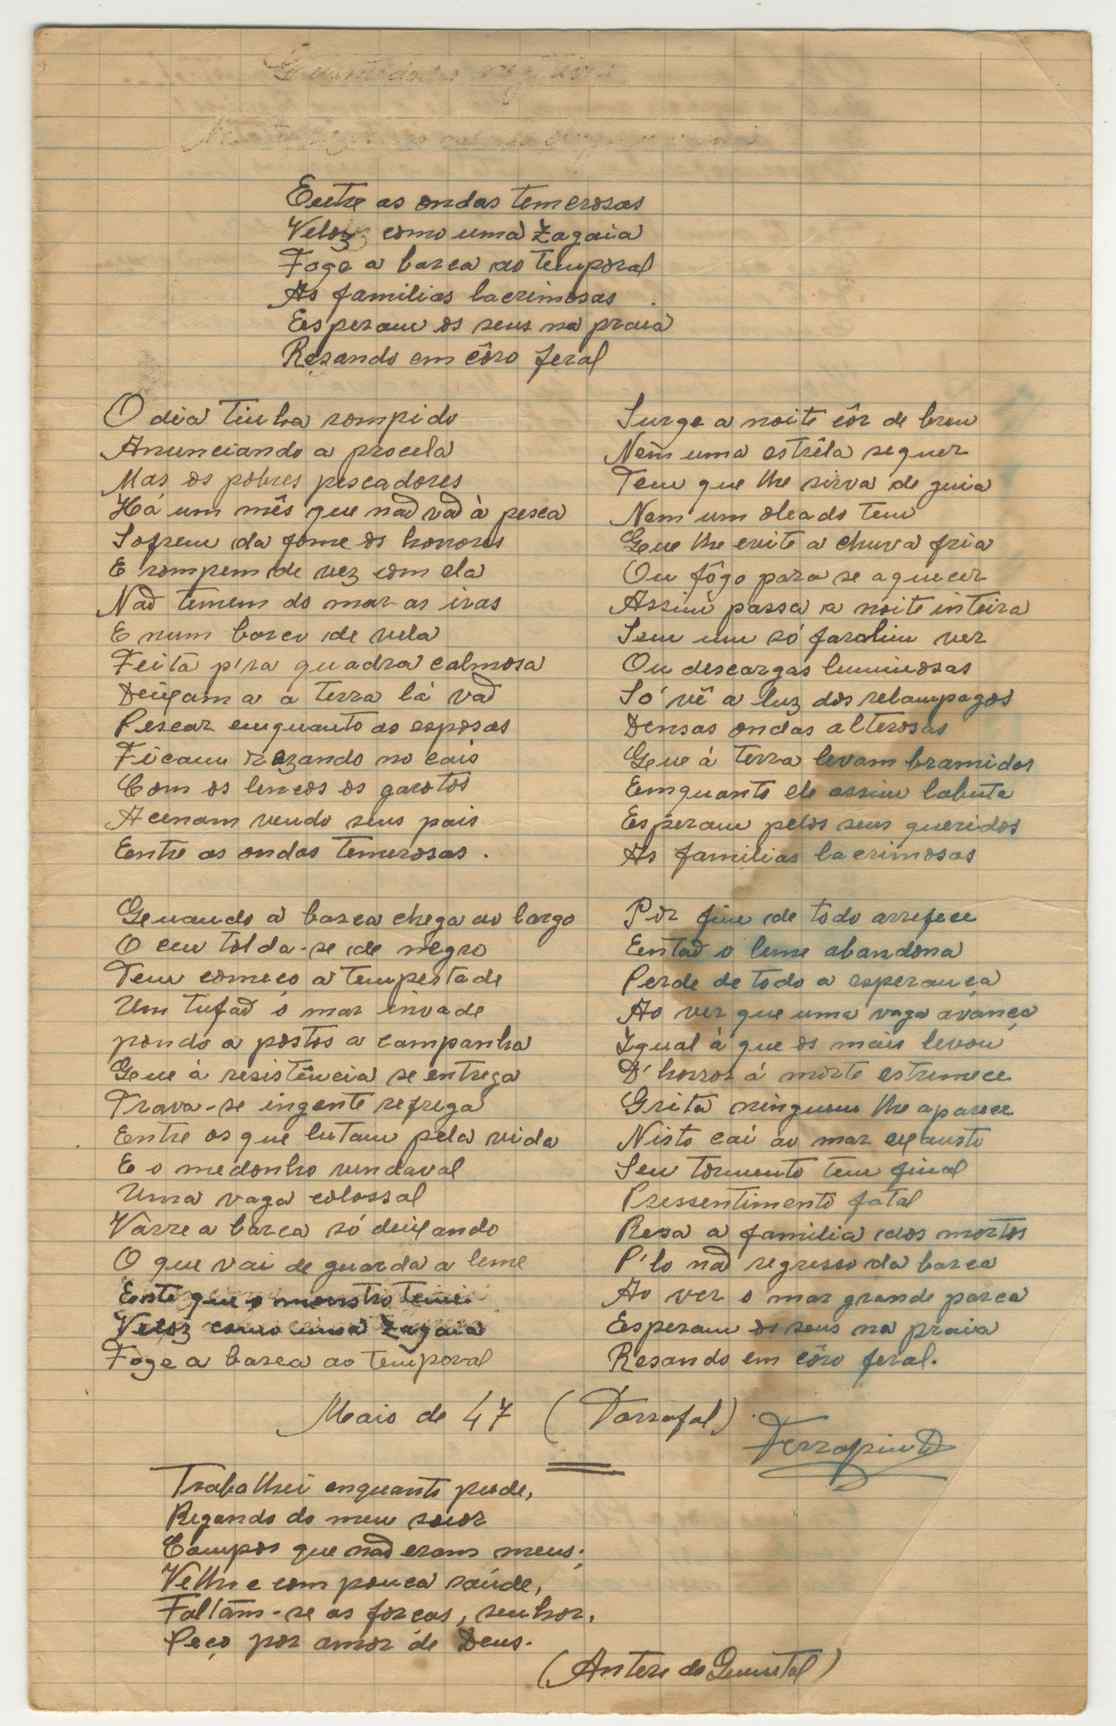 Entre as ondas temerosas
Veloz como uma Zagaia
Foge a barca ao temporal
As familias lacrimosas
Esperam os seus na praia
Resando em côro feral
O dia tinha rompido
Anunciando a procela
Mas os pobres pescadores
Há um mês que não vão à pesca
Sofrem da fome os horrores
E rompem de vez com ela
Não temem do mar as iras
E num barco de vela
Feita p'ra quadra calmosa
Deixam a a terra lá vão
Pescar emquanto as esposas
Ficam rezando no cais
Com os lencos os garotos
Acenam vendo seus pais
Entre as ondas temerosas.
Quando a barca chega ao largo
O ceu tolda-se de negro
Tem começo a tempestade
Um tufão o mar invade
pondo a postos a campanha
Que à resistência se entrega
Trava-se ingente refrega
Entre os que lutam pela vida
E o medonho vendaval
Uma vaga colossal
Varre a barca só deixando
O que vai de guarda a leme
Este que o monstro teme
Veloz como uma Zagaia
Foge a barca ao temporal
Surge a noite côr de breu
Nem uma estrêla sequer
Tem que lhe sirva de guia
Nem um oleado tem
Que lhe evite a chuva fria
Ou fôgo para se aquecer
Assim passa a noite inteira
Sem um só farolim ver
Ou descargas luminosas
Só vê a luz dos relampagos
Densas ondas alterosas
Que à terra levam bramidos
Emquanto ele assim labuta
Esperam pelos seus queridos
As familias lacrimosas
Por fim de todo arrefece
Então o leme abandona
Perde de todo a esperança
Ao ver que uma vaga avança
Igual à que os mais levou
D'horror á morte estremece
Grita ninguem lhe aparece
Nisto cai ao mar exausto
Seu tormento tem final
Pressentimento fatal
Resa a familia dos mortos
P'lo não regresso da barca
Ao ver o mar grande parca
Esperam os seus na praia
Resando em côro feral.
Maio de 47 (Tarrafal).
Trabalhei enquanto pude,
Regando do meu suor
Campos que não eram meus;
Velho e com pouca saúde,
Faltam-se as forcas, senhor,
Peço por amor de Deus.
(Antero do Quental)